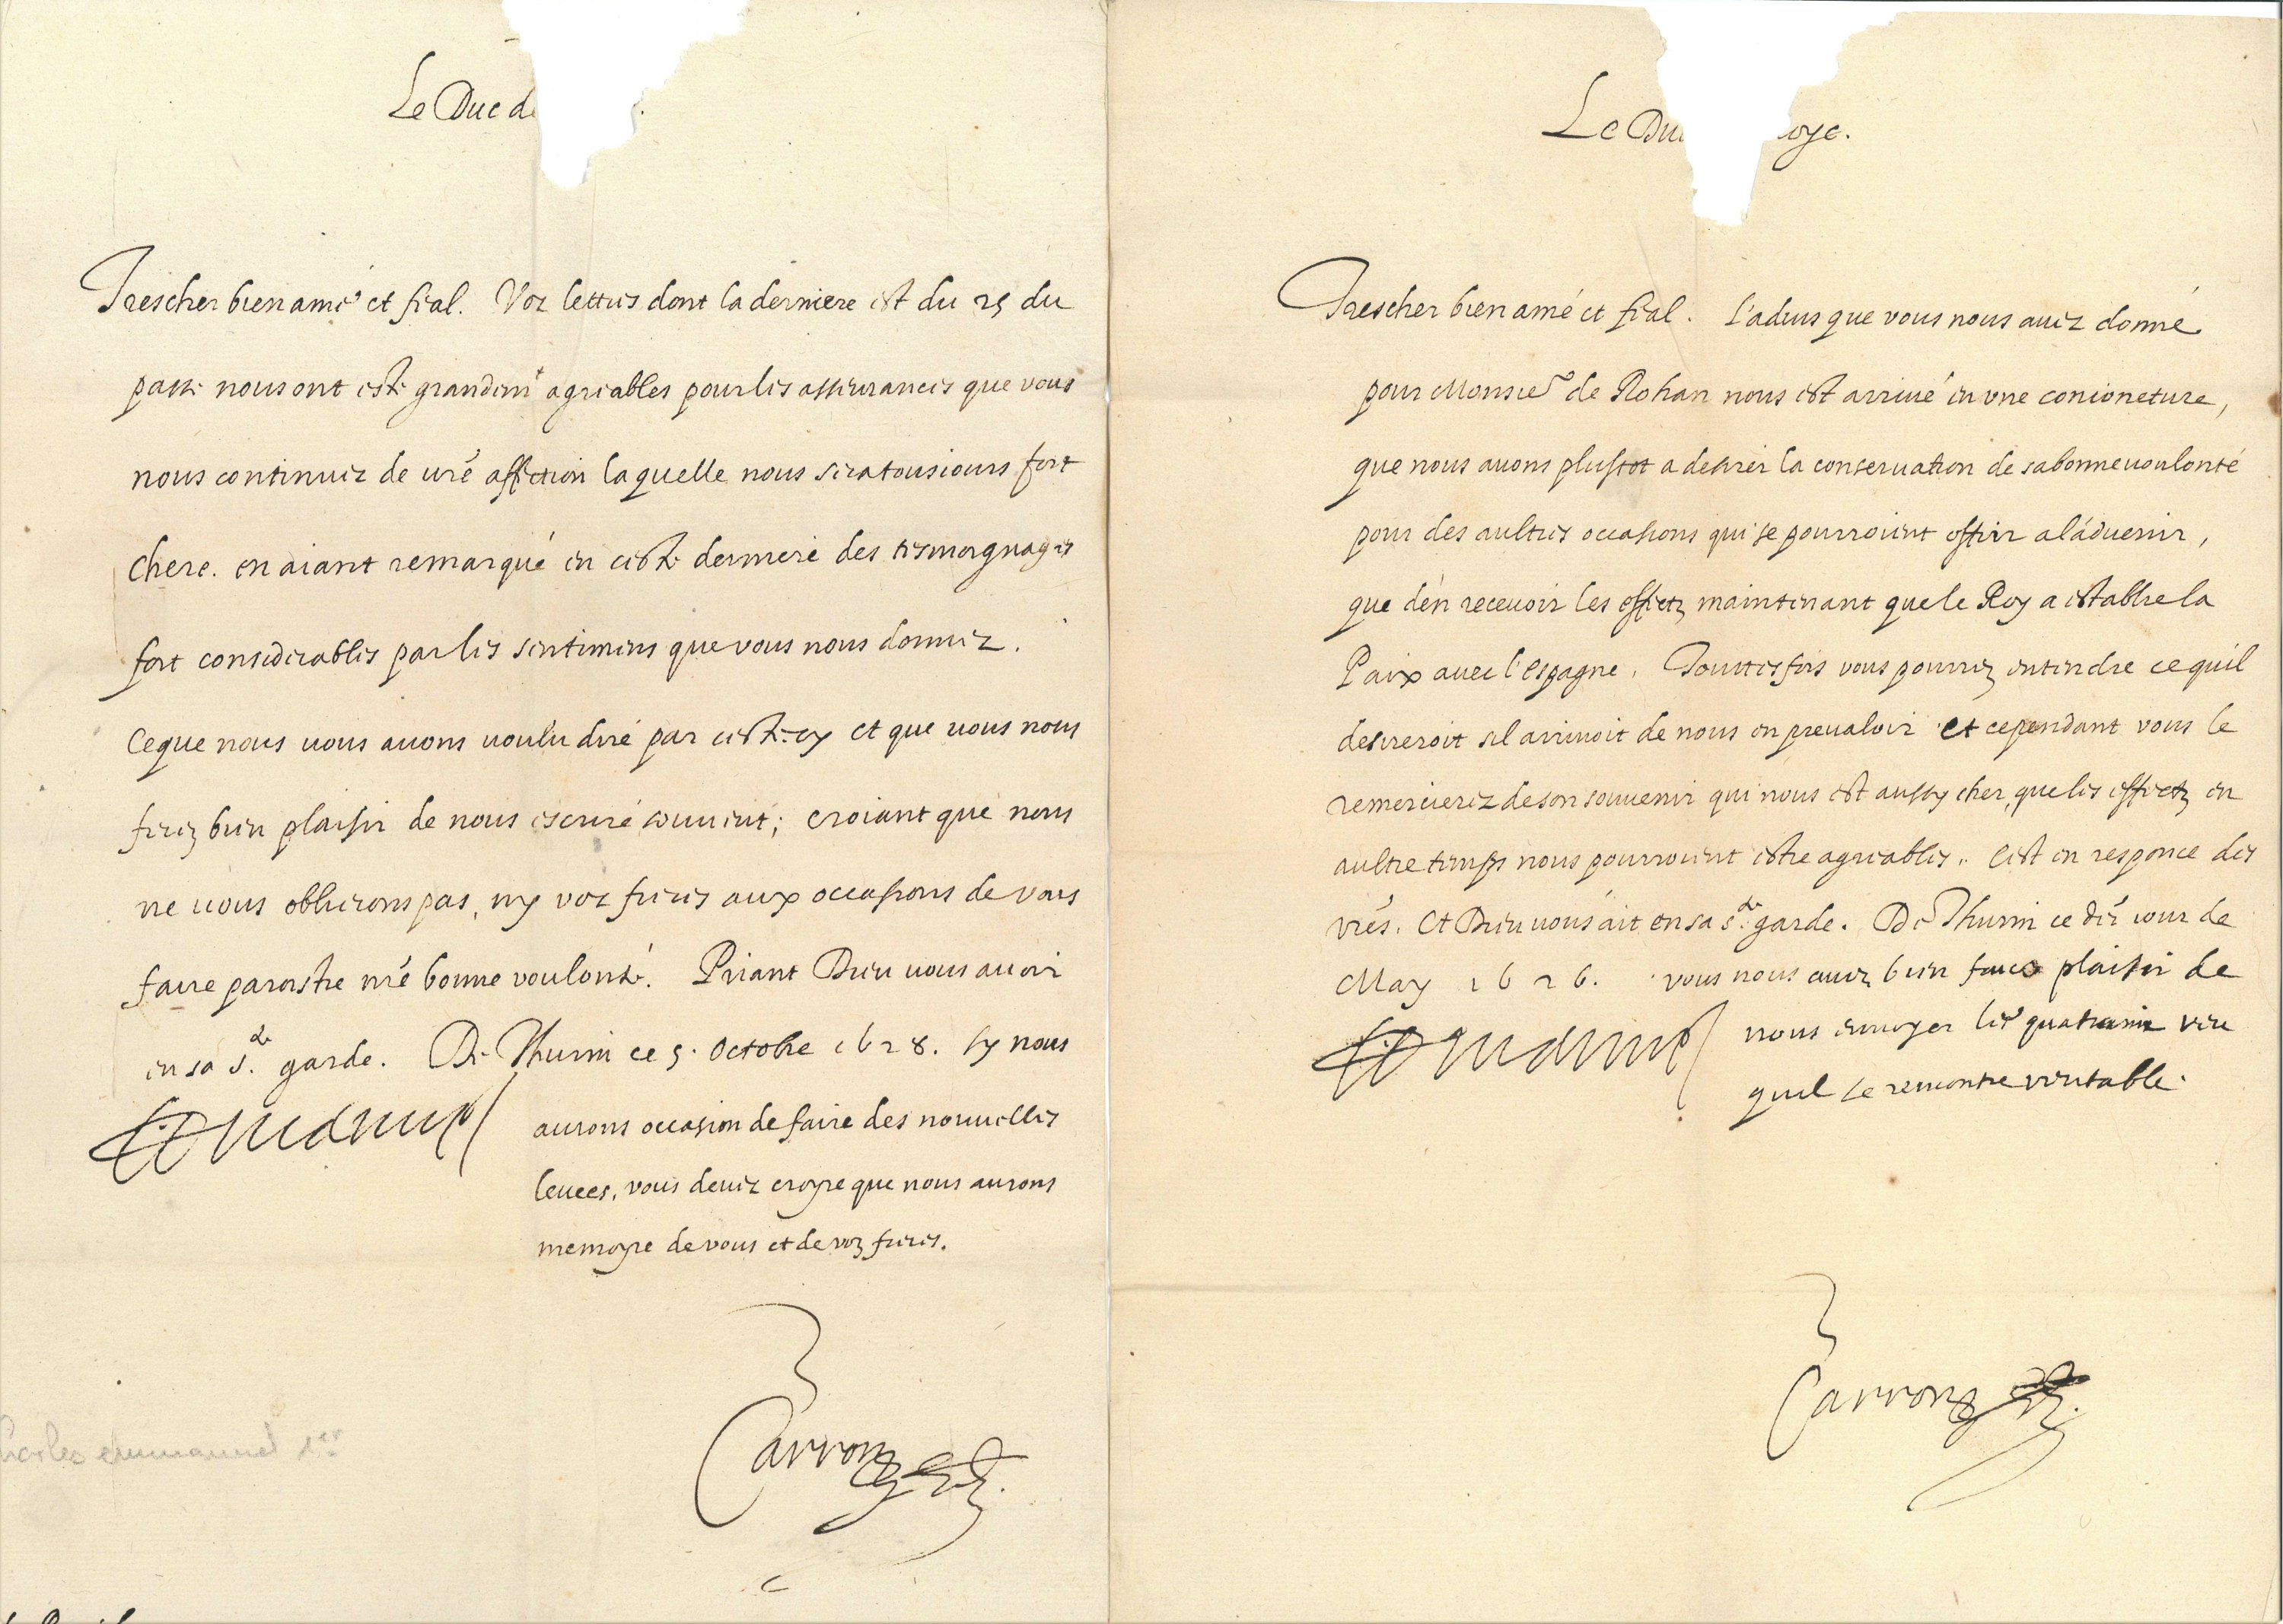 Le Duc de
Trescher bien amé et féal. Voz lettres dont la derniere est du 25 du
passé nous ont esté grandemt agreables pour les asseurances que vous
nous continuez de vrē affection laquelle nous sera tousiours fort
chere. en aiant remarqué en ceste derniere des tesmoignages
fort considerables par les sentimens que vous nous donnez.
Ce que nous vous avons voulu dire par ceste-cy et que vous nous
ferez bien plaisir de nous escrire souvent; croiant que nous
ne vous oblierons pas, ny voz freres aux occasions de vous
faire paroistre nrē bonne voulonté. Priant Dieu vous avoir
en sa s.te garde. De Thurin ce 5. Octobre 1628. sy nous
aurons occasion de faire des nouvelles
levees, vous devez croyre que nous aurons
memoyre de vous et de voz freres.
Carron
Charles emmanuel 1er
Le Duc oye.
Trescher bien amé et féal. L'advis que vous nous avez donné
pour Monsier de Rohan nous est arrivé en une conioncture,
que nous avons plustot a desirer la conservation de sa bonne voulonté
pour des aultres occasions qui se pourroient offrir a l'advenir,
que d'en recevoir les effectz maintenant que le Roy a estably la
Paix avec l'espagne. Touttesfois vous pourrez entendre ce quil
desireroit sil arrivoit de nous en prevaloir et cependant vous le
remercierez de son souvenir qui nous est aussy cher, que les effectz en
aultre temps nous pourroient estre agreables. C'est en responce des
vrēs. Et Dieu vous ait en sa s.te garde. De Thurin ce iour de
May 1626. vous nous avez bien faict plaisir de
nous envoyer le quatrain veu
quil se rencontre veritable.
Carron